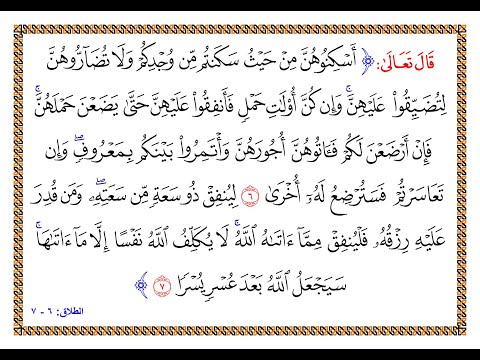 قَالَ تَعَالَىٰ: ﴿ أَسْكِنُوهُنَّ مِنْ حَيْثُ سَكَنتُم مِّن وُجْدِكُمْ وَلَا تُضَآرُّوهُنَّ
لِتُضَيِّقُوا۟ عَلَيْهِنَّ ۚ وَإِن كُنَّ أُو۟لَـٰتِ حَمْلٍ فَأَنفِقُوا۟ عَلَيْهِنَّ حَتَّىٰ يَضَعْنَ حَمْلَهُنَّ ۚ
فَإِنْ أَرْضَعْنَ لَكُمْ فَـَٔاتُوهُنَّ أُجُورَهُنَّ ۖ وَأْتَمِرُوا۟ بَيْنَكُم بِمَعْرُوفٍ ۖ وَإِن
تَعَاسَرْتُمْ فَسَتُرْضِعُ لَهُۥٓ أُخْرَىٰ ٦ لِيُنفِقْ ذُو سَعَةٍ مِّن سَعَتِهِۦ ۖ وَمَن قُدِرَ
عَلَيْهِ رِزْقُهُۥ فَلْيُنفِقْ مِمَّآ ءَاتَىٰهُ ٱللَّهُ ۚ لَا يُكَلِّفُ ٱللَّهُ نَفْسًا إِلَّا مَآ ءَاتَىٰهَا ۚ
سَيَجْعَلُ ٱللَّهُ بَعْدَ عُسْرٍ يُسْرًا ٧ ﴾
الطلاق: ٦ - ٧